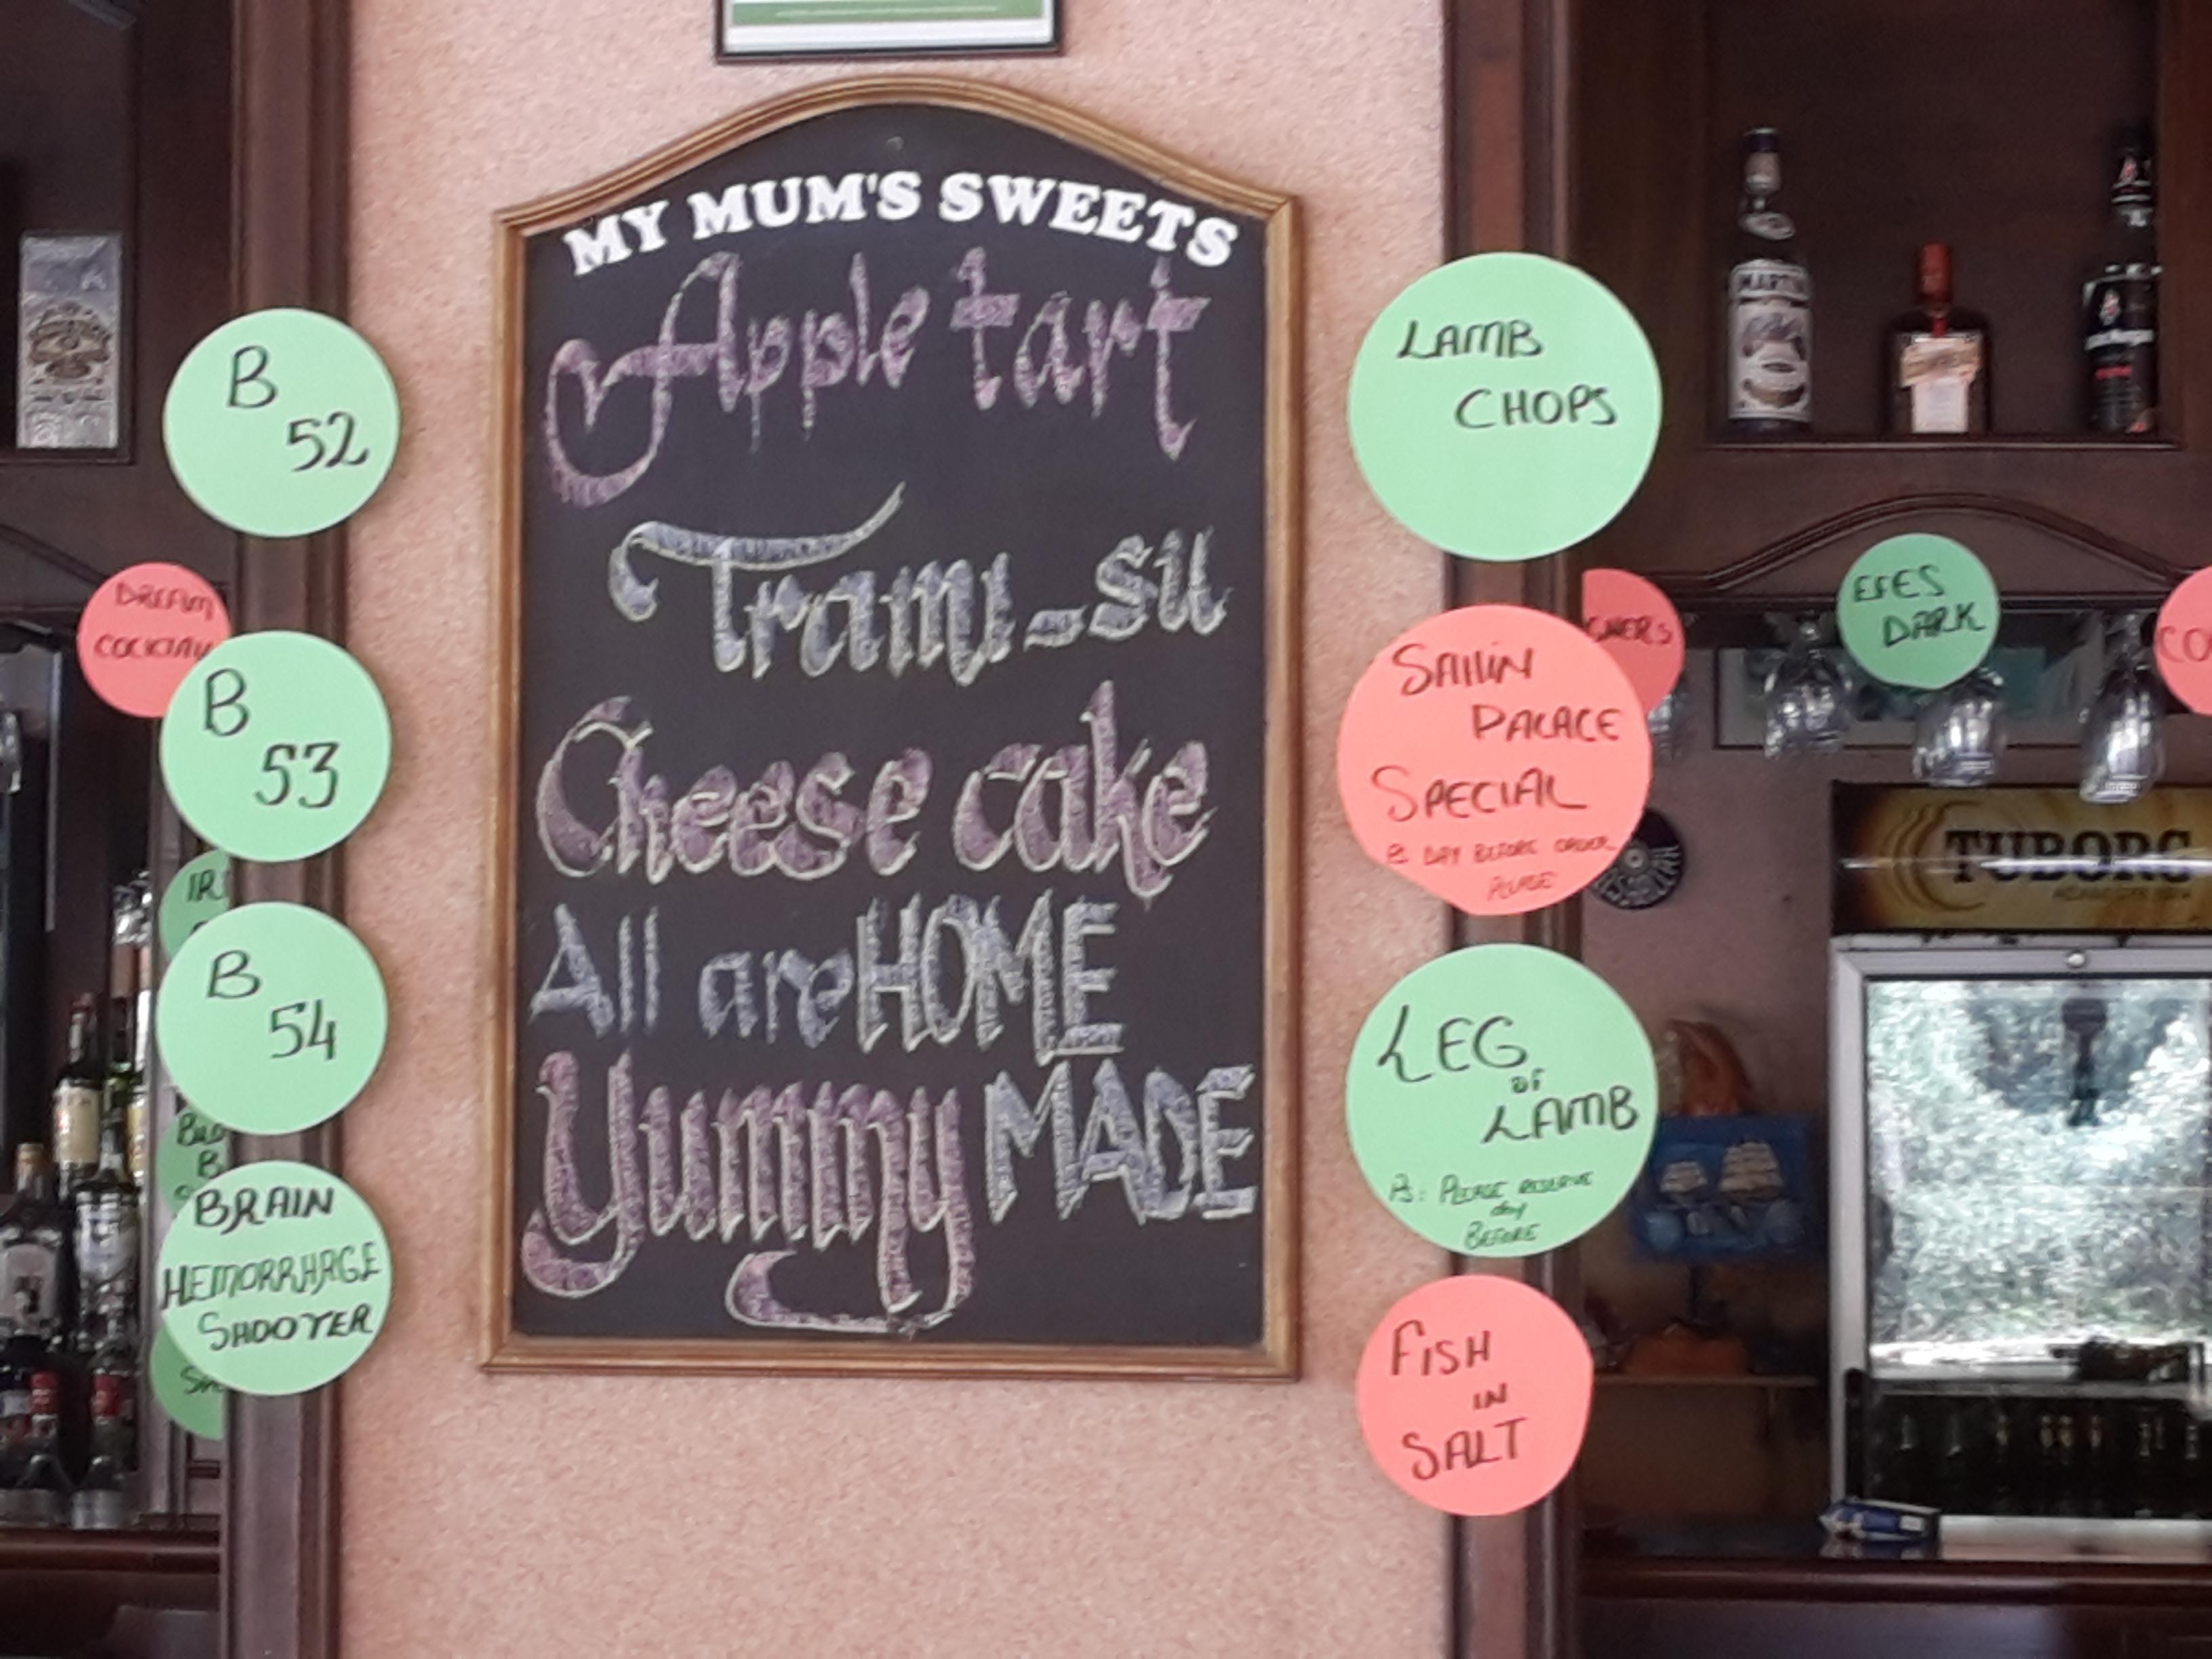 MY MUM'S SWEETS
Apple tart
Tramı-su
Cheese cake
All are HOME
Yummy MADE
B
52
DREAM
COCKTAIL
B
53
B
54
BRAIN
HEMORRHAGE
SHOOTER
LAMB
CHOPS
SAILIN
PALACE
SPECIAL
DAY BEFORE ORDER
PLEASE
LEG
OF
LAMB
PS: PLEASE RESERVE
day
BEFORE
FISH
IN
SALT
EFES
DARK
CO
MARTINI
TUBORG